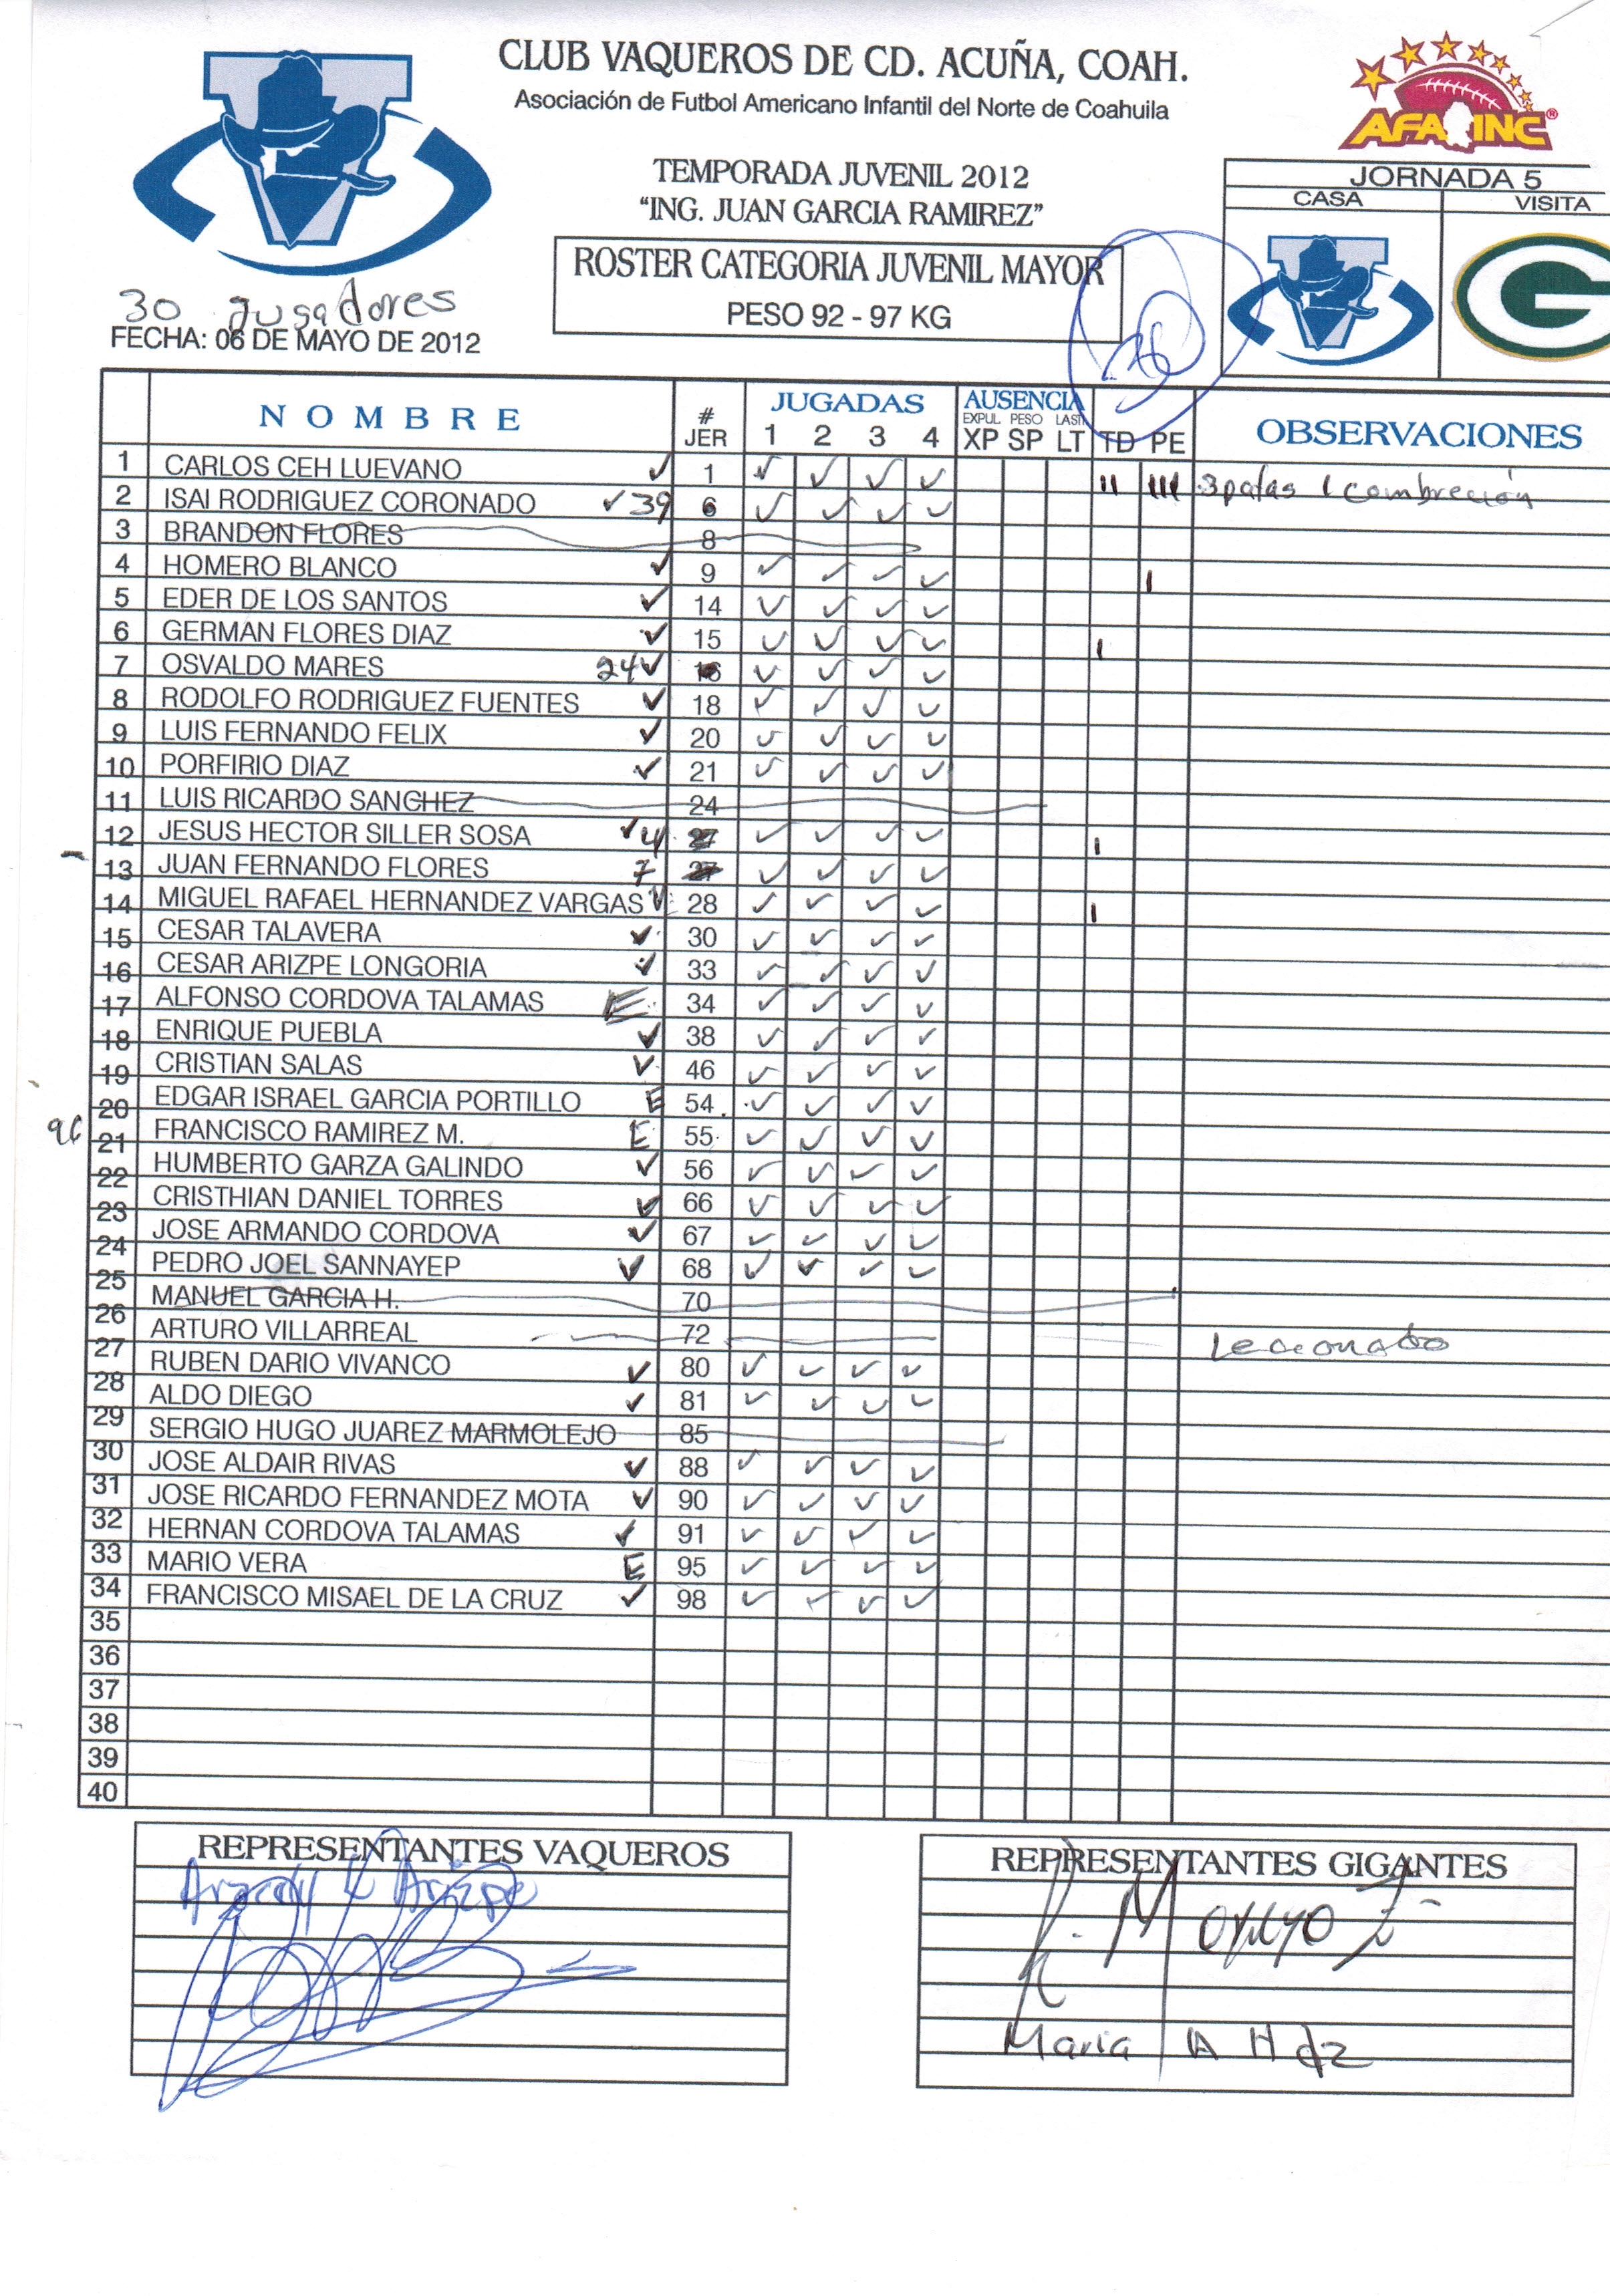 CLUB VAQUEROS DE CD. ACUÑA, COAH.
Asociación de Futbol Americano Infantil del Norte de Coahuila
AFA INC®
TEMPORADA JUVENIL 2012
“ING. JUAN GARCIA RAMIREZ”
JORNADA 5
CASA VISITA
G
ROSTER CATEGORIA JUVENIL MAYOR
PESO 92 - 97 KG
30 Jugadores
FECHA: 06 DE MAYO DE 2012
NOMBRE # JER JUGADAS 1 2 3 4 AUSENCIA EXPUL PESO LAST XP SP LT TD PE OBSERVACIONES
1 CARLOS CEH LUEVANO ✓ 1 ✓ ✓ ✓ ✓ II IIII 3 patas 1
2 ISAI RODRIGUEZ CORONADO ✓ 39 6 ✓ ✓ ✓ ✓
3 BRANDON FLORES 8
4 HOMERO BLANCO ✓ 9 ✓ ✓ ✓ ✓ I
5 EDER DE LOS SANTOS ✓ 14 ✓ ✓ ✓ ✓
6 GERMAN FLORES DIAZ ✓ 15 ✓ ✓ ✓ ✓ I
7 OSVALDO MARES 24 ✓ 16 ✓ ✓ ✓ ✓
8 RODOLFO RODRIGUEZ FUENTES ✓ 18 ✓ ✓ ✓ ✓
9 LUIS FERNANDO FELIX ✓ 20 ✓ ✓ ✓ ✓
10 PORFIRIO DIAZ ✓ 21 ✓ ✓ ✓ ✓
11 LUIS RICARDO SANCHEZ 24
12 JESUS HECTOR SILLER SOSA ✓ 4 27 ✓ ✓ ✓ ✓ I
13 JUAN FERNANDO FLORES 7 27 ✓ ✓ ✓ ✓
14 MIGUEL RAFAEL HERNANDEZ VARGAS ✓ 28 ✓ ✓ ✓ ✓ I
15 CESAR TALAVERA ✓ 30 ✓ ✓ ✓ ✓
16 CESAR ARIZPE LONGORIA ✓ 33 ✓ ✓ ✓ ✓
17 ALFONSO CORDOVA TALAMAS E 34 ✓ ✓ ✓ ✓
18 ENRIQUE PUEBLA ✓ 38 ✓ ✓ ✓ ✓
19 CRISTIAN SALAS ✓ 46 ✓ ✓ ✓ ✓
20 EDGAR ISRAEL GARCIA PORTILLO E 54 ✓ ✓ ✓ ✓
21 FRANCISCO RAMIREZ M. E 55 ✓ ✓ ✓ ✓
22 HUMBERTO GARZA GALINDO ✓ 56 ✓ ✓ ✓ ✓
23 CRISTHIAN DANIEL TORRES ✓ 66 ✓ ✓ ✓ ✓
24 JOSE ARMANDO CORDOVA ✓ 67 ✓ ✓ ✓ ✓
25 PEDRO JOEL SANNAYEP ✓ 68 ✓ ✓ ✓ ✓
26 MANUEL GARCIA H. 70
27 ARTURO VILLARREAL 72 Lecionado
28 RUBEN DARIO VIVANCO ✓ 80 ✓ ✓ ✓ ✓
29 ALDO DIEGO ✓ 81 ✓ ✓ ✓ ✓
30 SERGIO HUGO JUAREZ MARMOLEJO 85
31 JOSE ALDAIR RIVAS ✓ 88 ✓ ✓ ✓ ✓
32 JOSE RICARDO FERNANDEZ MOTA ✓ 90 ✓ ✓ ✓ ✓
33 HERNAN CORDOVA TALAMAS ✓ 91 ✓ ✓ ✓ ✓
34 MARIO VERA E 95 ✓ ✓ ✓ ✓
35 FRANCISCO MISAEL DE LA CRUZ ✓ 98 ✓ ✓ ✓ ✓
36
37
38
39
40
REPRESENTANTES VAQUEROS
Arizpe
REPRESENTANTES GIGANTES
Maria A Hdz